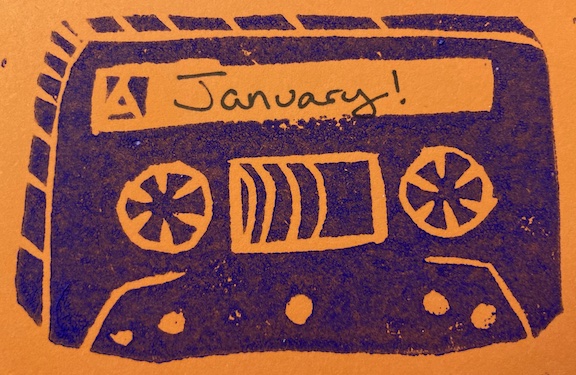 A January!